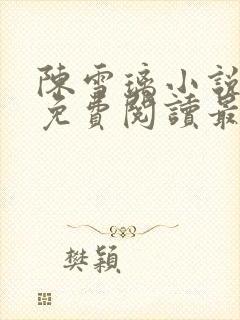 陳雪璃小說
免費閱讀最
樊穎